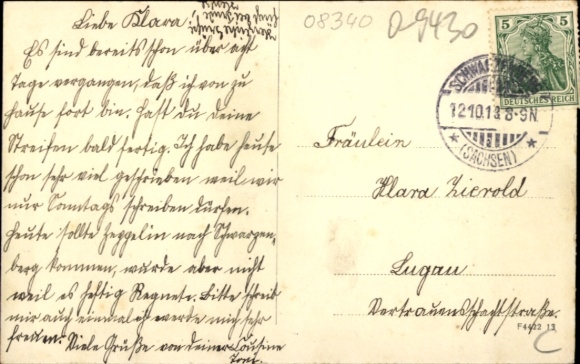 Liebe Klara!
Es sind bereits schon über acht
Tage vergangen, daß ich von zu
Hause fort bin. Hast du deine
Streifen bald fertig. Ich habe heuse
schon sehr viel geschrieben weil wir
nur Sonntags schreiben dürfen.
Heute sollte Zeppelin nach Schwarzen,
berg kommen, wurde aber nicht
weil es heftig Regnete. Bitte schreib
mir auch einmal werde mich sehr
freuen. Viele Grüße von deiner Cousine
Toni.
08340
A9430
5 5
DEUTSCHES REICH
SCHWARZENBERG
12.10.13. 8-9N.
* (SACHSEN) *
Fräulein
Klara Zierold
Lugau
Vertrauensschachtstraße.
F4422 13